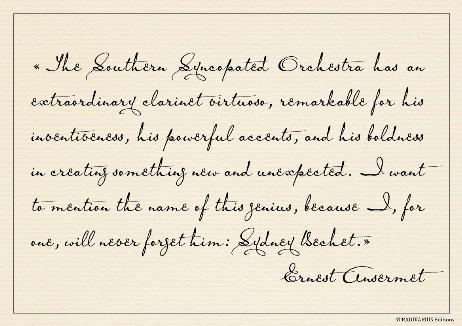 « The Southern Syncopated Orchestra has an
extraordinary clarinet virtuoso, remarkable for his
inventiveness, his powerful accents, and his boldness
in creating something new and unexpected. I want
to mention the name of this genius, because I, for
one, will never forget him: Sydney Bechet.»
Ernest Ansermet
STRADIVARIUS Editions